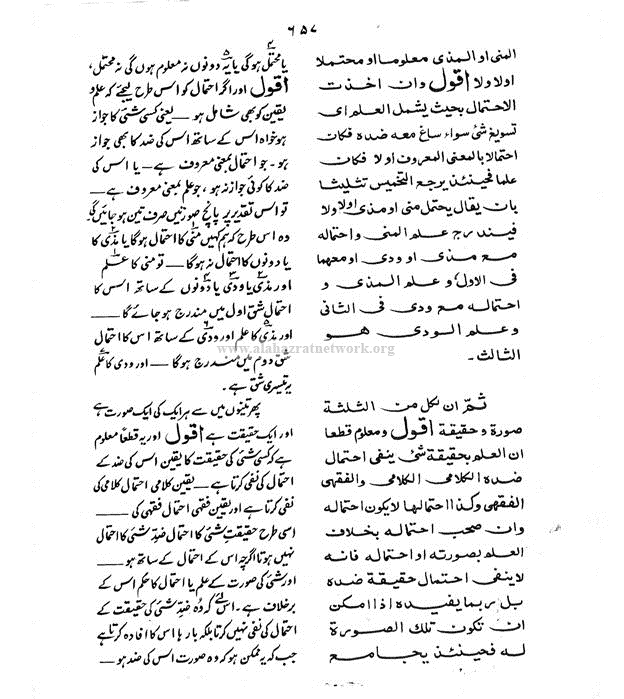 ۶۵۷
المنی او المذی معلوما او محتملا
اولا ولا اقول وان اخذت
الاحتمال بحیث یشمل العلم ای
تسویغ شئ سواء ساغ معہ ضدہ فکان
احتمالا بالمعنی المعروف اولا فکان
علما فحینئذ یرجع التخمیس تثلیثا
بان یقال یحتمل منی او مذی اولا ولا
فیندرج علم المنی واحتمالہ
مع مذی او ودی او معھما
فی الاول، و علم المذی و
احتمالہ مع ودی فی الثانی
و علم الودی ھو
الثالث۔
ثمّ ان لکل من الثلثۃ
صورۃ وحقیقۃ اقول ومعلوم قطعا
ان العلم بحقیقۃ شئ ینفی احتمال
ضدہ الکلامی الکلامی والفقھی
الفقھی وکذا احتمالھا لا یکون احتمالہ
وان صحب احتمالہ بخلاف
العلم بصورتہ او احتمالہ فانہ
لا ینفی احتمال حقیقۃ ضدہ
بل ربما یفیدہ اذا امکن
ان تکون تلک الصورۃ
لہ فحینئذ یجامع
یا محتمل ہوگی یا یہ دونوں نہ معلوم ہوں گی نہ محتمل،
اقول اور اگر احتمال کو اس طرح لیجئے کہ علم و
یقین کو بھی شامل ہو ــــ یعنی کسی شئی کا جواز
ہو خواہ اس کے ساتھ اس کی ضد کا بھی جواز
ہو۔ جو احتمال بمعنی معروف ہے ــ یا اس کی
ضد کا کوئی جواز نہ ہو، جو علم بمعنی معروف ہے ــ
تو اس تقدیر پر پانچ صورتیں صرف تین ہو جائیں گی
وہ اس طرح کہ ہم کہیں منی کا احتمال ہوگا یا مذی کا
یا دونوں کا احتمال نہ ہوگا ــــ تو منی کا علم
اور مذی یا ودی یا دونوں کے ساتھ اس کا
احتمال شق اول میں مندرج ہو جائے گا ــــ
اور مذی کا علم اور ودی کے ساتھ اس کا احتمال
شق دوم میں مندرج ہوگا ــــ اور ودی کا علم
یہ تیسری شق ہے۔
پھر تینوں میں سے ہر ایک کی ایک صورت ہے
اور ایک حقیقت ہے اقول اور یہ قطعاً معلوم
ہے کہ کسی شئی کی حقیقت کا یقین اس کی ضد کے
احتمال کی نفی کرتا ہے ــــ یقین کلامی احتمال کلامی کی
نفی کرتا ہے اور یقین فقہی احتمال فقہی کی ــــ
اسی طرح حقیقتِ شئی کا احتمال ضدِ شئی کا احتمال
نہیں ہوتا اگرچہ اس کے احتمال کے ساتھ ہو ــــ
اور شئی کی صورت کے علم یا احتمال کا حکم اس کے
برخلاف ہے۔ اس لئے کہ وہ ضدِ شئی کی حقیقت کے
احتمال کی نفی نہیں کرتا بلکہ بارہا اس کا افادہ کرتا ہے
جب کہ یہ ممکن ہو کہ وہ صورت اس کی ضد ہو ــــ
www.alahazratnetwork.org